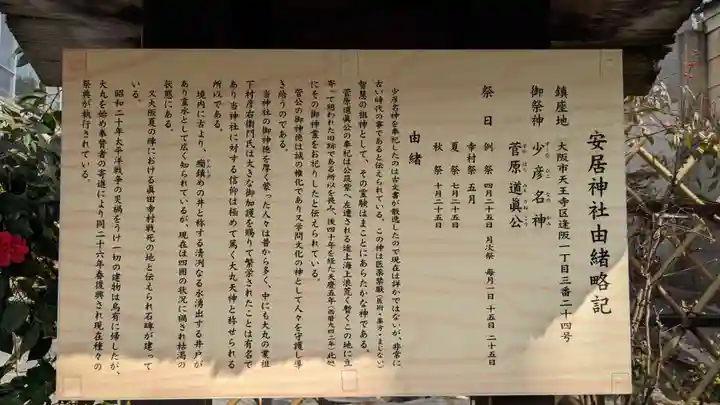 安居神社由緒略記
鎮座地 大阪市天王寺区逢阪一丁目三番二十四号
御祭神 少彦名神
すくなひこなのかみ
菅原道眞公
すがはらみちざねこう
祭日 例祭 四月二十五日 月次祭 毎月一日 十五日 二十五日
幸村祭 五月
夏祭 七月二十五日
秋祭 十月二十五日
由緒
少彦名神を奉祀したのは古文書が散逸したので現在は詳かではないが、非常に
古い時代の事であると伝えられている。この神は医薬禁厭(医術・薬方・まじない)
智慧の祖神として、その霊験はまことにあらたかな神である。
菅原道眞公の奉祀は公筑紫へ左遷される途上海上浪荒く暫くこの地に立
寄って憩われた旧跡である所以を畏み、後四十年を経た天慶五年(西暦九四二年)此処
にその御神霊をお祀りしたと伝えられている。
菅公の御神徳は誠の権化であり又学問文化の神として人々を守護し導
き給うのである。
当神社の御神徳を厚く蒙った人々は昔から多く、中にも大丸の業祖
下村彦右衛門氏は大きな御加護を賜りて繁栄されたことは有名で
あり当神社に対する信仰は極めて篤く大丸天神と称せられる
所以である。
境内に左より、癇鎮めの井と称する清洌なる水湧出する井戸が
あり霊水として広く知られているが、現在は四囲の状況に禍され枯渇の
状態にある。
又大阪夏の陣における眞田幸村戦死の地と伝えられ石碑が建って
いる。
昭和二十年太平洋戦争の災禍をうけ一切の建物は烏有に帰したが、
大丸を始め奉賛者の寄進により同二十六年春復興され現在種々の
祭典が執行されている。